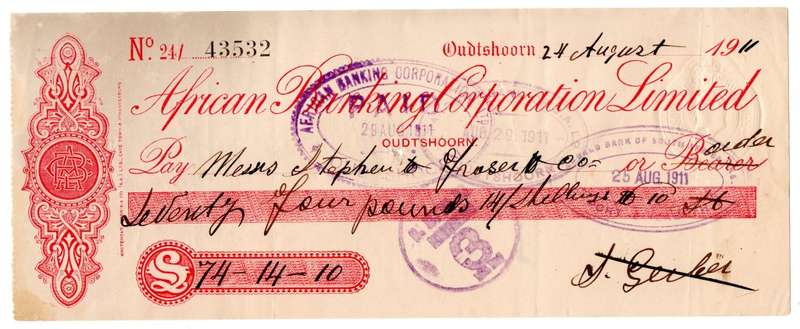 No. 24/ 43532
Oudtshoorn 24 August 1911
African Banking Corporation Limited
AFRICAN BANKING CORPORATION
PAID
29 AUG 1911
AUG 29 1911
OUDTSHOORN.
BANK OF
25 AUG 1911
Pay Messrs Stephen Fraser & Co or Bearer order
Seventy four pounds 14/ Shellings & 10
£ 74-14-10
J. Gerber